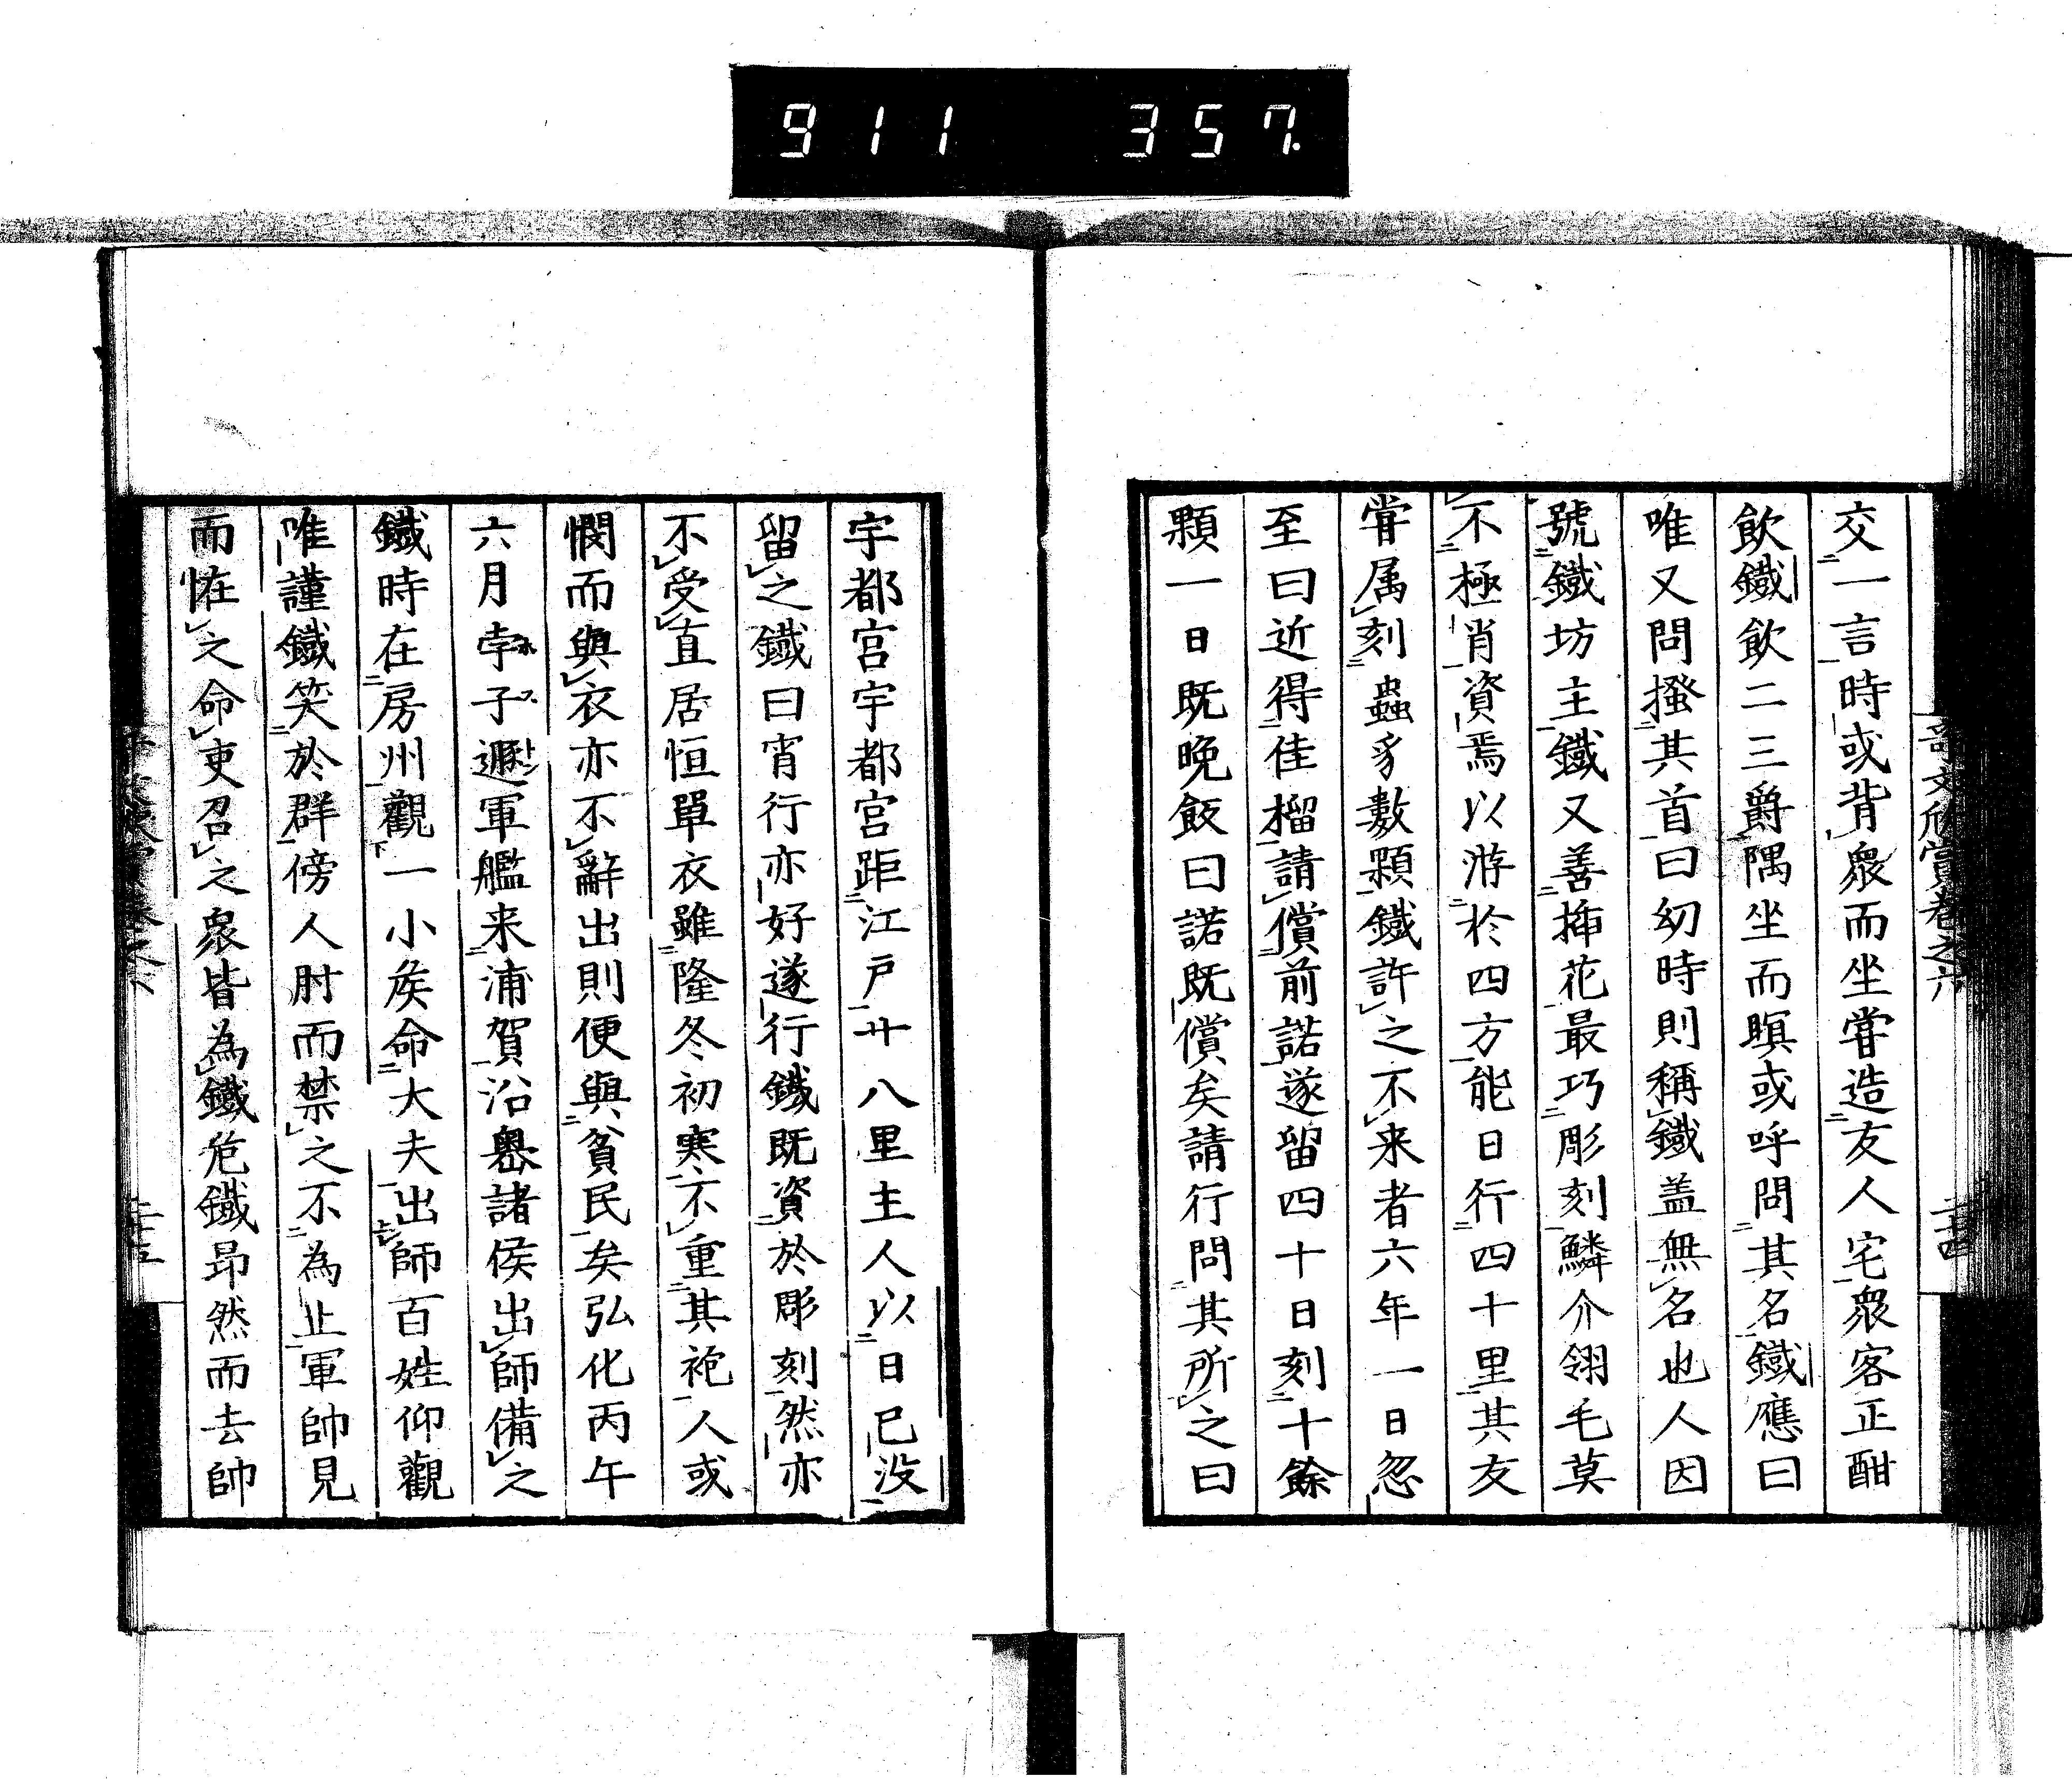 911 357.
奇文欣賞卷之六
二十四
交一言時或背衆而坐嘗造友人宅衆客正酣
飲鐵飲二三爵隅坐而瞑或呼問其名鐵應曰
唯又問搔其首曰幼時則稱鐵盖無名也人因
號鐵坊主鐵又善挿花最巧彫刻鱗介翎毛莫
不極肖資焉以游於四方能日行四十里其友
嘗属刻蟲豸數顆鐵許之不来者六年一日忽
至曰近得佳榴請償前諾遂留四十日刻十餘
顆一日既晚飯曰諾既償矣請行問其所之曰
宇都宮宇都宮距江戸廿八里主人以日已没
留之鐵曰宵行亦好遂行鐵既資於彫刻然亦
不受直居恒單衣雖隆冬初寒不重其袍人或
憫而與衣亦不辭出則便與貧民矣弘化丙午
六月孛子遯軍艦来浦賀沿嶴諸侯出師備之
鐵時在房州觀一小矦命大夫出師百姓仰觀
唯謹鐵笑於群傍人肘而禁之不為止軍帥見
而恠之命吏召之衆皆為鐵危鐵昂然而去帥
二十五